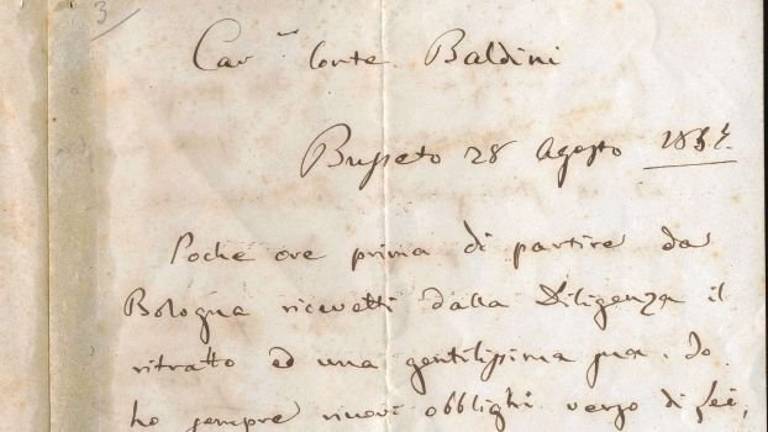 3
Car.mo Conte Baldini
Busseto 28 Agosto
Poche ore prima di partire da
Bologna ricevetti dalla Diligenza il
ritratto ed una gentilissima sua. Io
ho sempre nuovi obblighi verso di Lei,